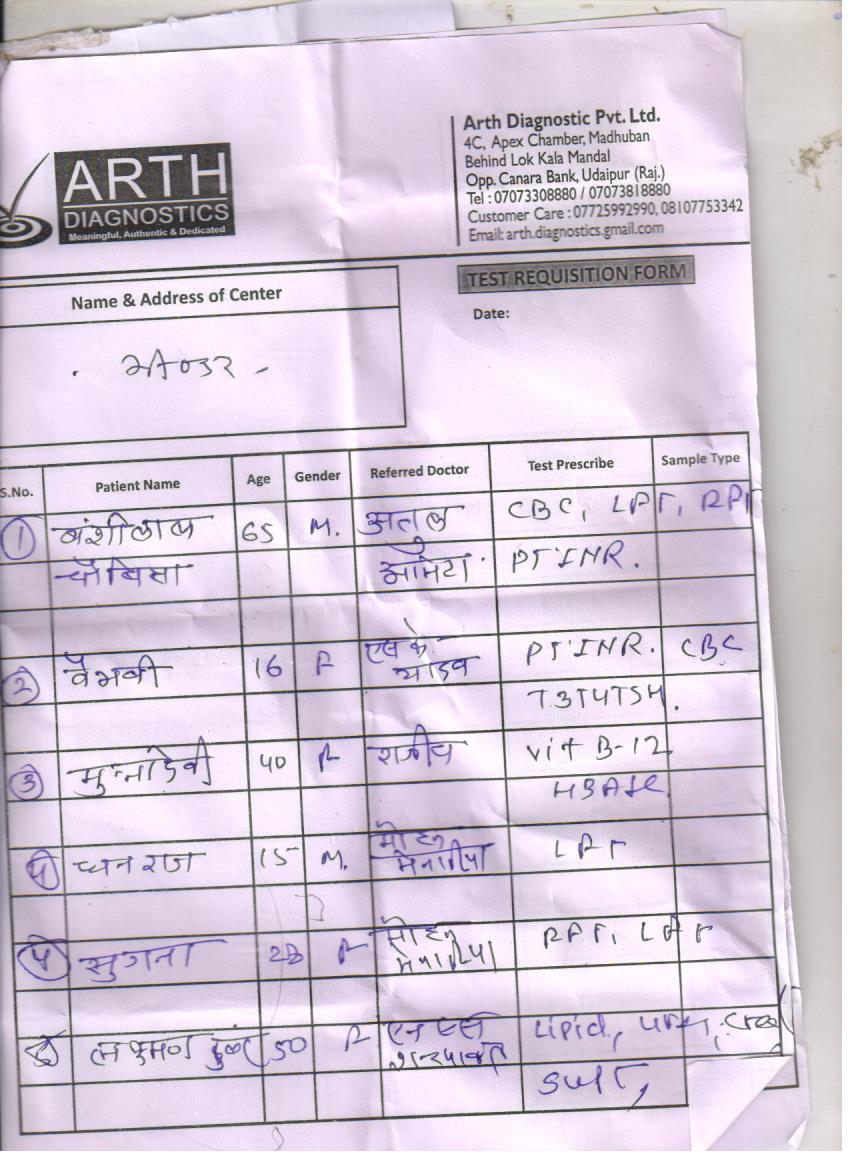 ARTH
DIAGNOSTICS
Meaningful, Authentic & Dedicated
Arth Diagnostic Pvt. Ltd.
4C, Apex Chamber, Madhuban
Behind Lok Kala Mandal
Opp. Canara Bank, Udaipur (Raj.)
Tel : 07073308880 / 07073818880
Customer Care : 07725992990, 08107753342
Email: arth.diagnostics.gmail.com
TEST REQUISITION FORM
Name & Address of Center
Date:
S.No. Patient Name Age Gender Referred Doctor Test Prescribe Sample Type
1 बंशीलाल 65 M. अतुल CBC, LFT, RFT
चौबिसा आमेटा PT INR.
2 वैभवी 16 F एस के यादव PT INR. CBC
T3T4TSH.
3 मुन्नादेवी 40 F राजीव vit B-12
HBA1C
4 धनराज 15 M. मोहन मेनारिया LFT
सुगना 28 F मोहन मेनारिया RFT, LFT
50 F Lipid,